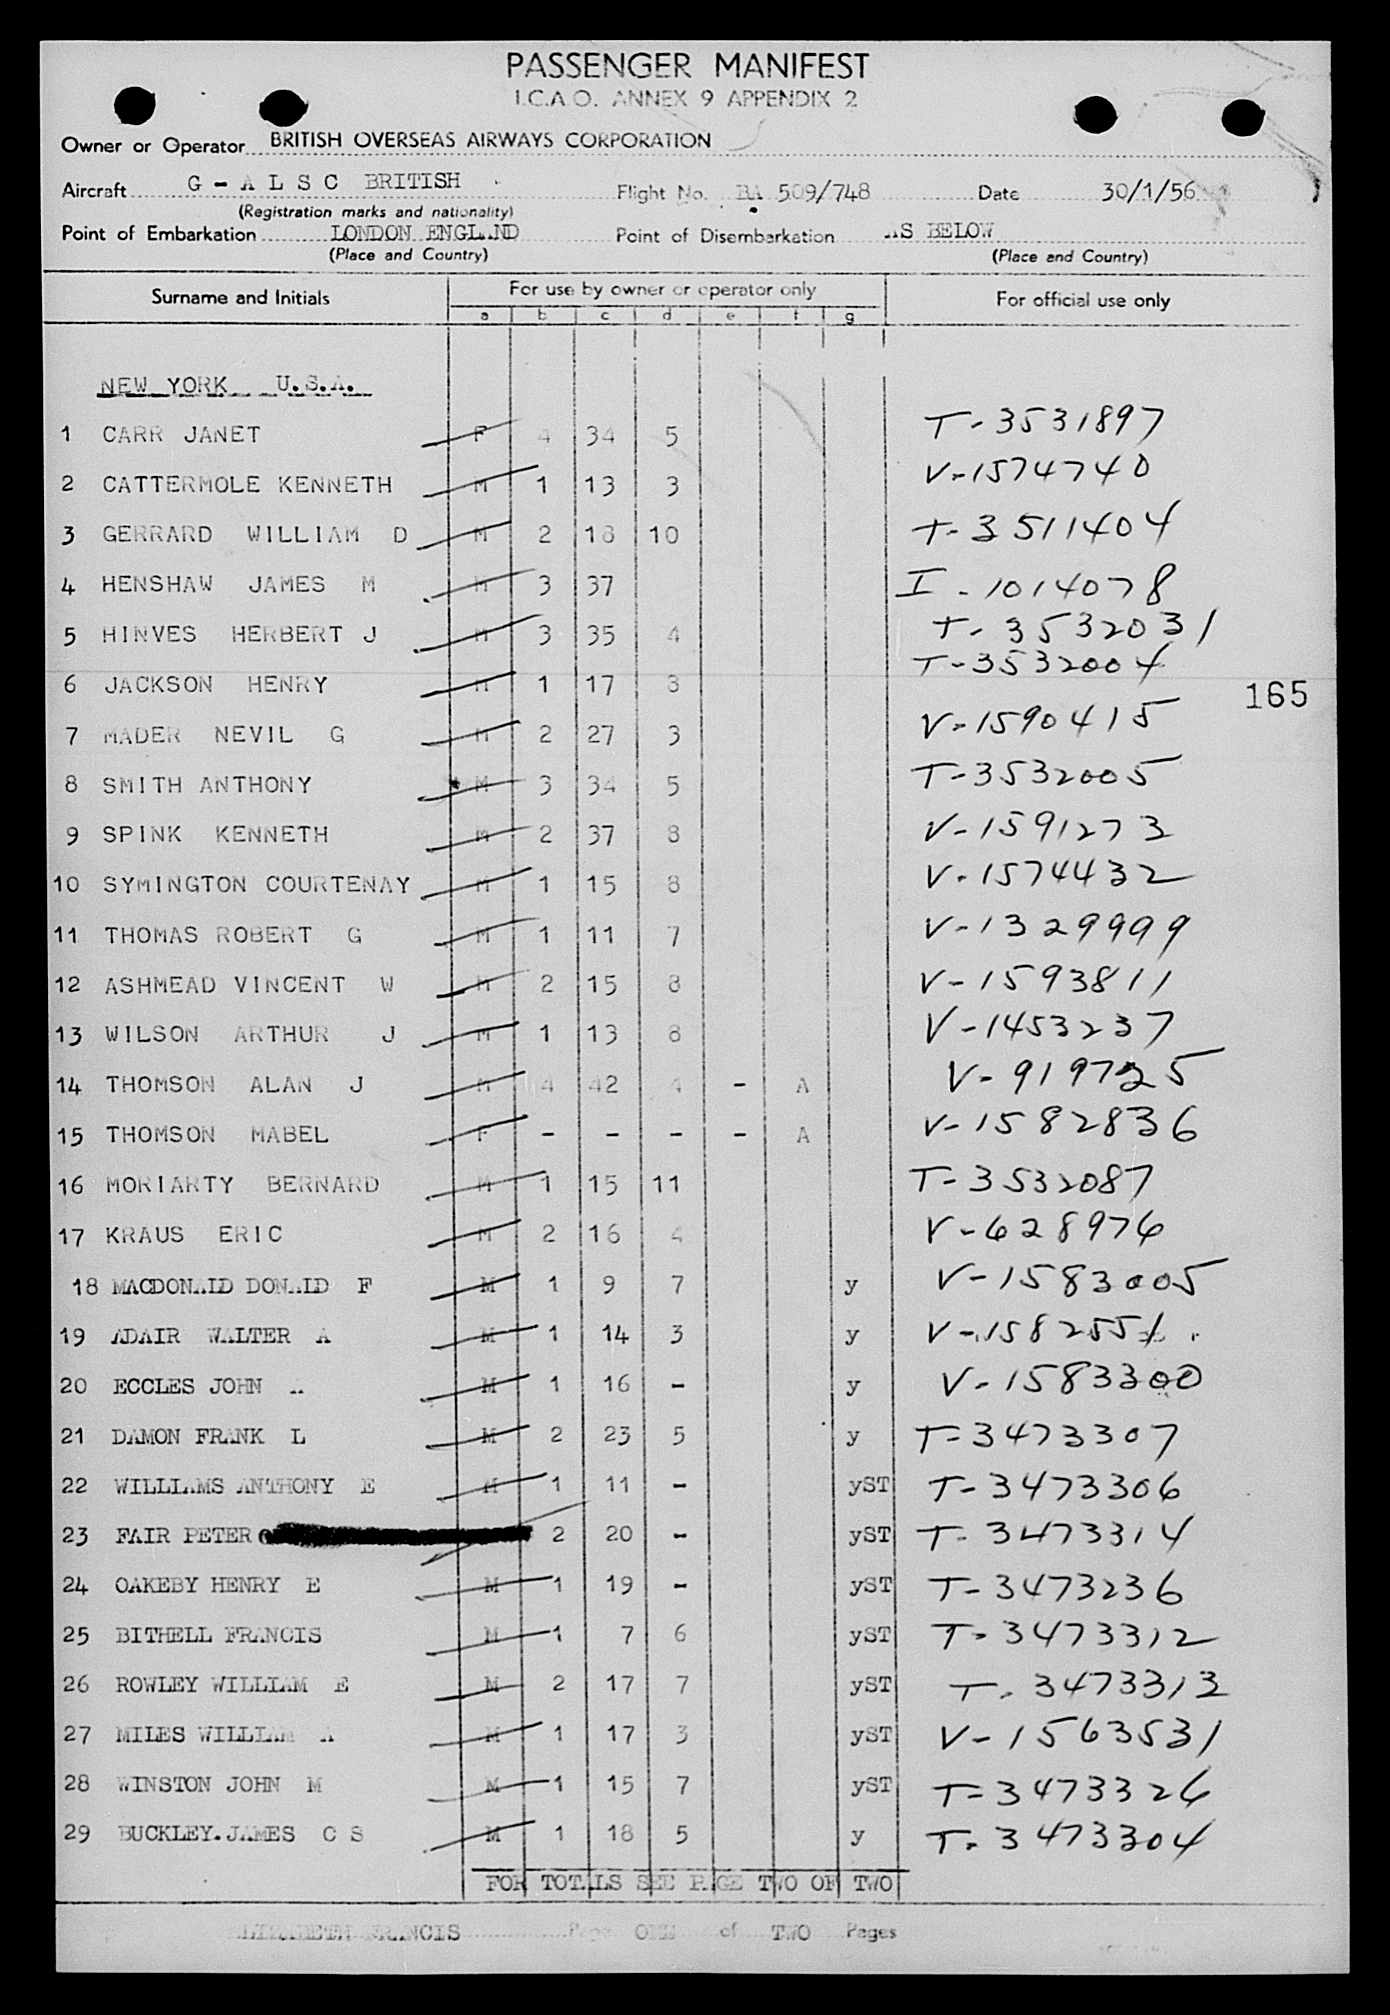 PASSENGER MANIFEST
I.C.A.O. ANNEX 9 APPENDIX 2
Owner or Operator BRITISH OVERSEAS AIRWAYS CORPORATION
Aircraft G - A L S C BRITISH Flight No. BA 509/748 Date 30/1/56
(Registration marks and nationality)
Point of Embarkation LONDON ENGLAND Point of Disembarkation AS BELOW
(Place and Country) (Place and Country)
Surname and Initials For use by owner or operator only For official use only
a b c d e f g
NEW YORK U.S.A.
1 CARR JANET F 4 34 5 T-3531897
2 CATTERMOLE KENNETH M 1 13 3 V-1574740
3 GERRARD WILLIAM D M 2 18 10 T-3511404
4 HENSHAW JAMES M M 3 37 I-1014078
5 HINVES HERBERT J M 3 35 4 T-3532031
6 JACKSON HENRY M 1 17 8 T-3532004
165
7 MADER NEVIL G M 2 27 3 V-1590415
8 SMITH ANTHONY M 3 34 5 T-3532005
9 SPINK KENNETH M 2 37 8 V-1591273
10 SYMINGTON COURTENAY M 1 15 8 V-1574432
11 THOMAS ROBERT G M 1 11 7 V-1329999
12 ASHMEAD VINCENT W M 2 15 8 V-1593811
13 WILSON ARTHUR J M 1 13 8 V-1453237
14 THOMSON ALAN J M 4 42 4 - A V-919725
15 THOMSON MABEL F - - - - A V-1582836
16 MORIARTY BERNARD M 1 15 11 T-3532087
17 KRAUS ERIC M 2 16 4 V-628976
18 MACDONALD DONALD F M 1 9 7 y V-1583005
19 ADAIR WALTER A M 1 14 3 y V-1582551
20 ECCLES JOHN A M 1 16 - y V-1583300
21 DAMON FRANK L M 2 23 5 y T-3473307
22 WILLIAMS ANTHONY E M 1 11 - yST T-3473306
23 FAIR PETER 2 20 - yST T-3473314
24 OAKEBY HENRY E M 1 19 - yST T-3473236
25 BITHELL FRANCIS M 1 7 6 yST T-3473312
26 ROWLEY WILLIAM E M 2 17 7 yST T-3473313
27 MILES WILLIAM A M 1 17 3 yST V-1563531
28 WINSTON JOHN M M 1 15 7 yST T-3473326
29 BUCKLEY.JAMES C S M 1 18 5 y T-3473304
FOR TOTALS SEE PAGE TWO OF TWO
ELIZABETH FRANCIS Page ONE of TWO Pages